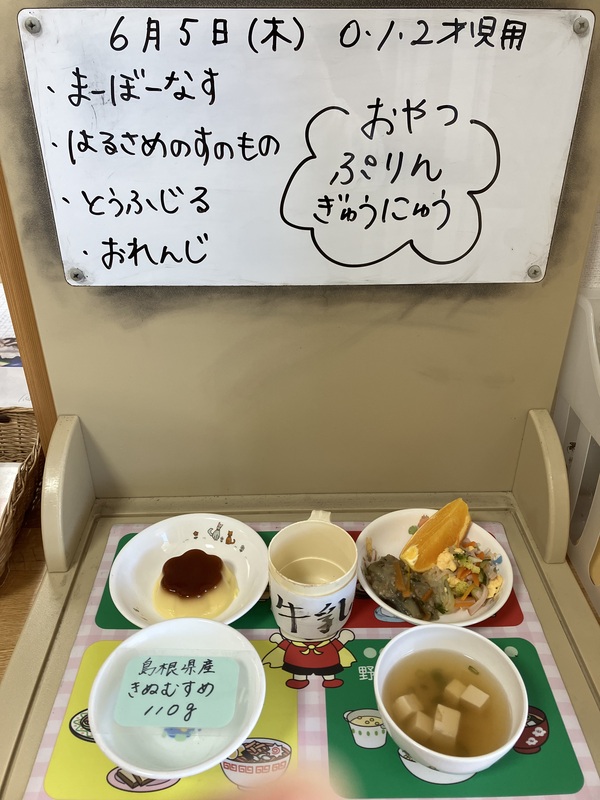 6月5日(木) 0.1.2才児用
・まーぼーなす
・はるさめのすのもの
・とうふじる
・おれんじ
おやつ
ぷりん
ぎゅうにゅう
牛乳
島根県産
きぬむすめ
110g
野